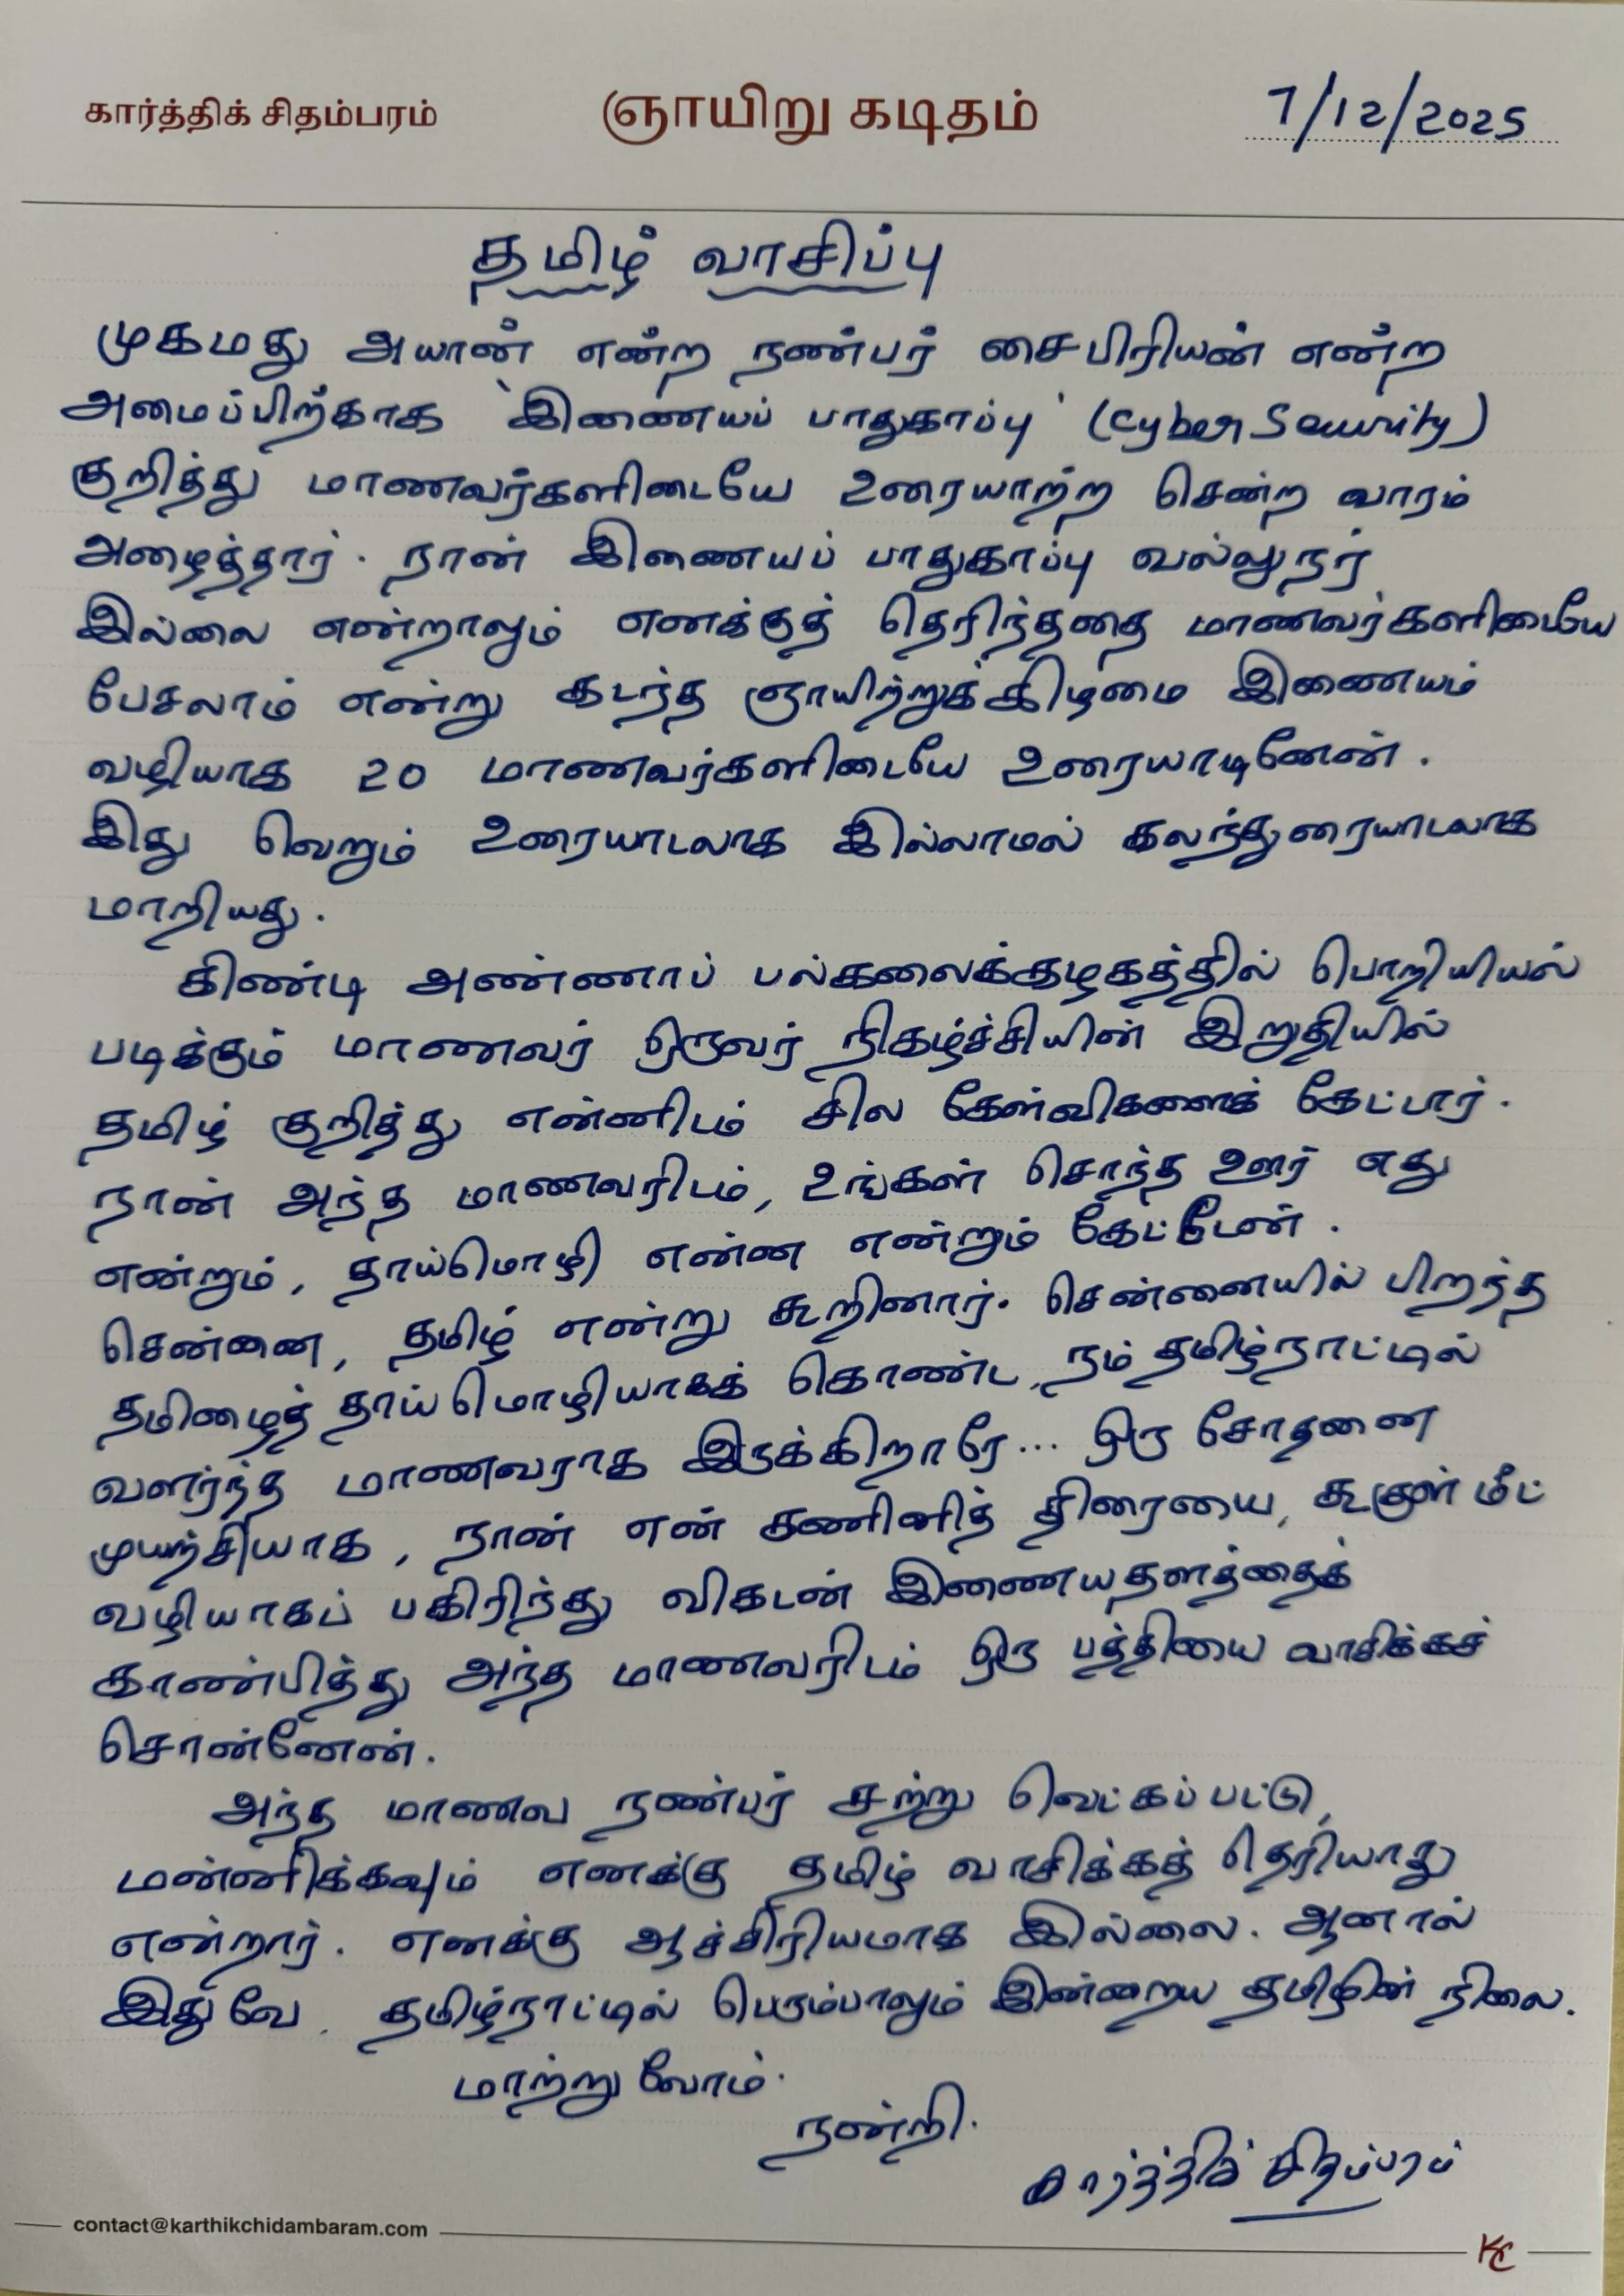 கார்த்திக் சிதம்பரம் ஞாயிறு கடிதம் 7/12/2025
தமிழ் வாசிப்பு
முகமது அயான் என்ற நண்பர் சைபிரியன் என்ற
அமைப்பிற்காக 'இணையப் பாதுகாப்பு' (Cyber Security)
குறித்து மாணவர்களிடையே உரையாற்ற சென்ற வாரம்
அழைத்தார். நான் இணையப் பாதுகாப்பு வல்லுநர்
இல்லை என்றாலும் எனக்குத் தெரிந்ததை மாணவர்களிடையே
பேசலாம் என்று கடந்த ஞாயிற்றுக்கிழமை இணையம்
வழியாக 20 மாணவர்களிடையே உரையாடினேன்.
இது வெறும் உரையாடலாக இல்லாமல் கலந்துரையாடலாக
மாறியது.
கிண்டி அண்ணாப் பல்கலைக்குழகத்தில் பொறியியல்
படிக்கும் மாணவர் ஒருவர் நிகழ்ச்சியின் இறுதியில்
தமிழ் குறித்து என்னிடம் சில கேள்விகளைக் கேட்டார்.
நான் அந்த மாணவரிடம், உங்கள் சொந்த ஊர் எது
என்றும், தாய்மொழி என்ன என்றும் கேட்டேன்.
சென்னை, தமிழ் என்று கூறினார். சென்னையில் பிறந்த
தமிழைத் தாய் மொழியாகக் கொண்ட, நம் தமிழ்நாட்டில்
வளர்ந்த மாணவராக இருக்கிறாரே... ஒரு சோதனை
முயற்சியாக, நான் என் கணினித் திரையை, கூகுள் மீட்
வழியாகப் பகிரிந்து விகடன் இணையதளத்தைக்
காண்பித்து அந்த மாணவரிடம் ஒரு பத்தியை வாசிக்கச்
சொன்னேன்.
அந்த மாணவ நண்பர் சற்று வெட்கப்பட்டு,
மன்னிக்கவும் எனக்கு தமிழ் வாசிக்கத் தெரியாது
என்றார். எனக்கு ஆச்சிரியமாக இல்லை. ஆனால்
இதுவே, தமிழ்நாட்டில் பெரும்பாலும் இன்றைய தமிழின் நிலை.
மாற்றுவோம்.
நன்றி.
கார்த்திக் சிதம்பரம்
contact@karthikchidambaram.com
KC